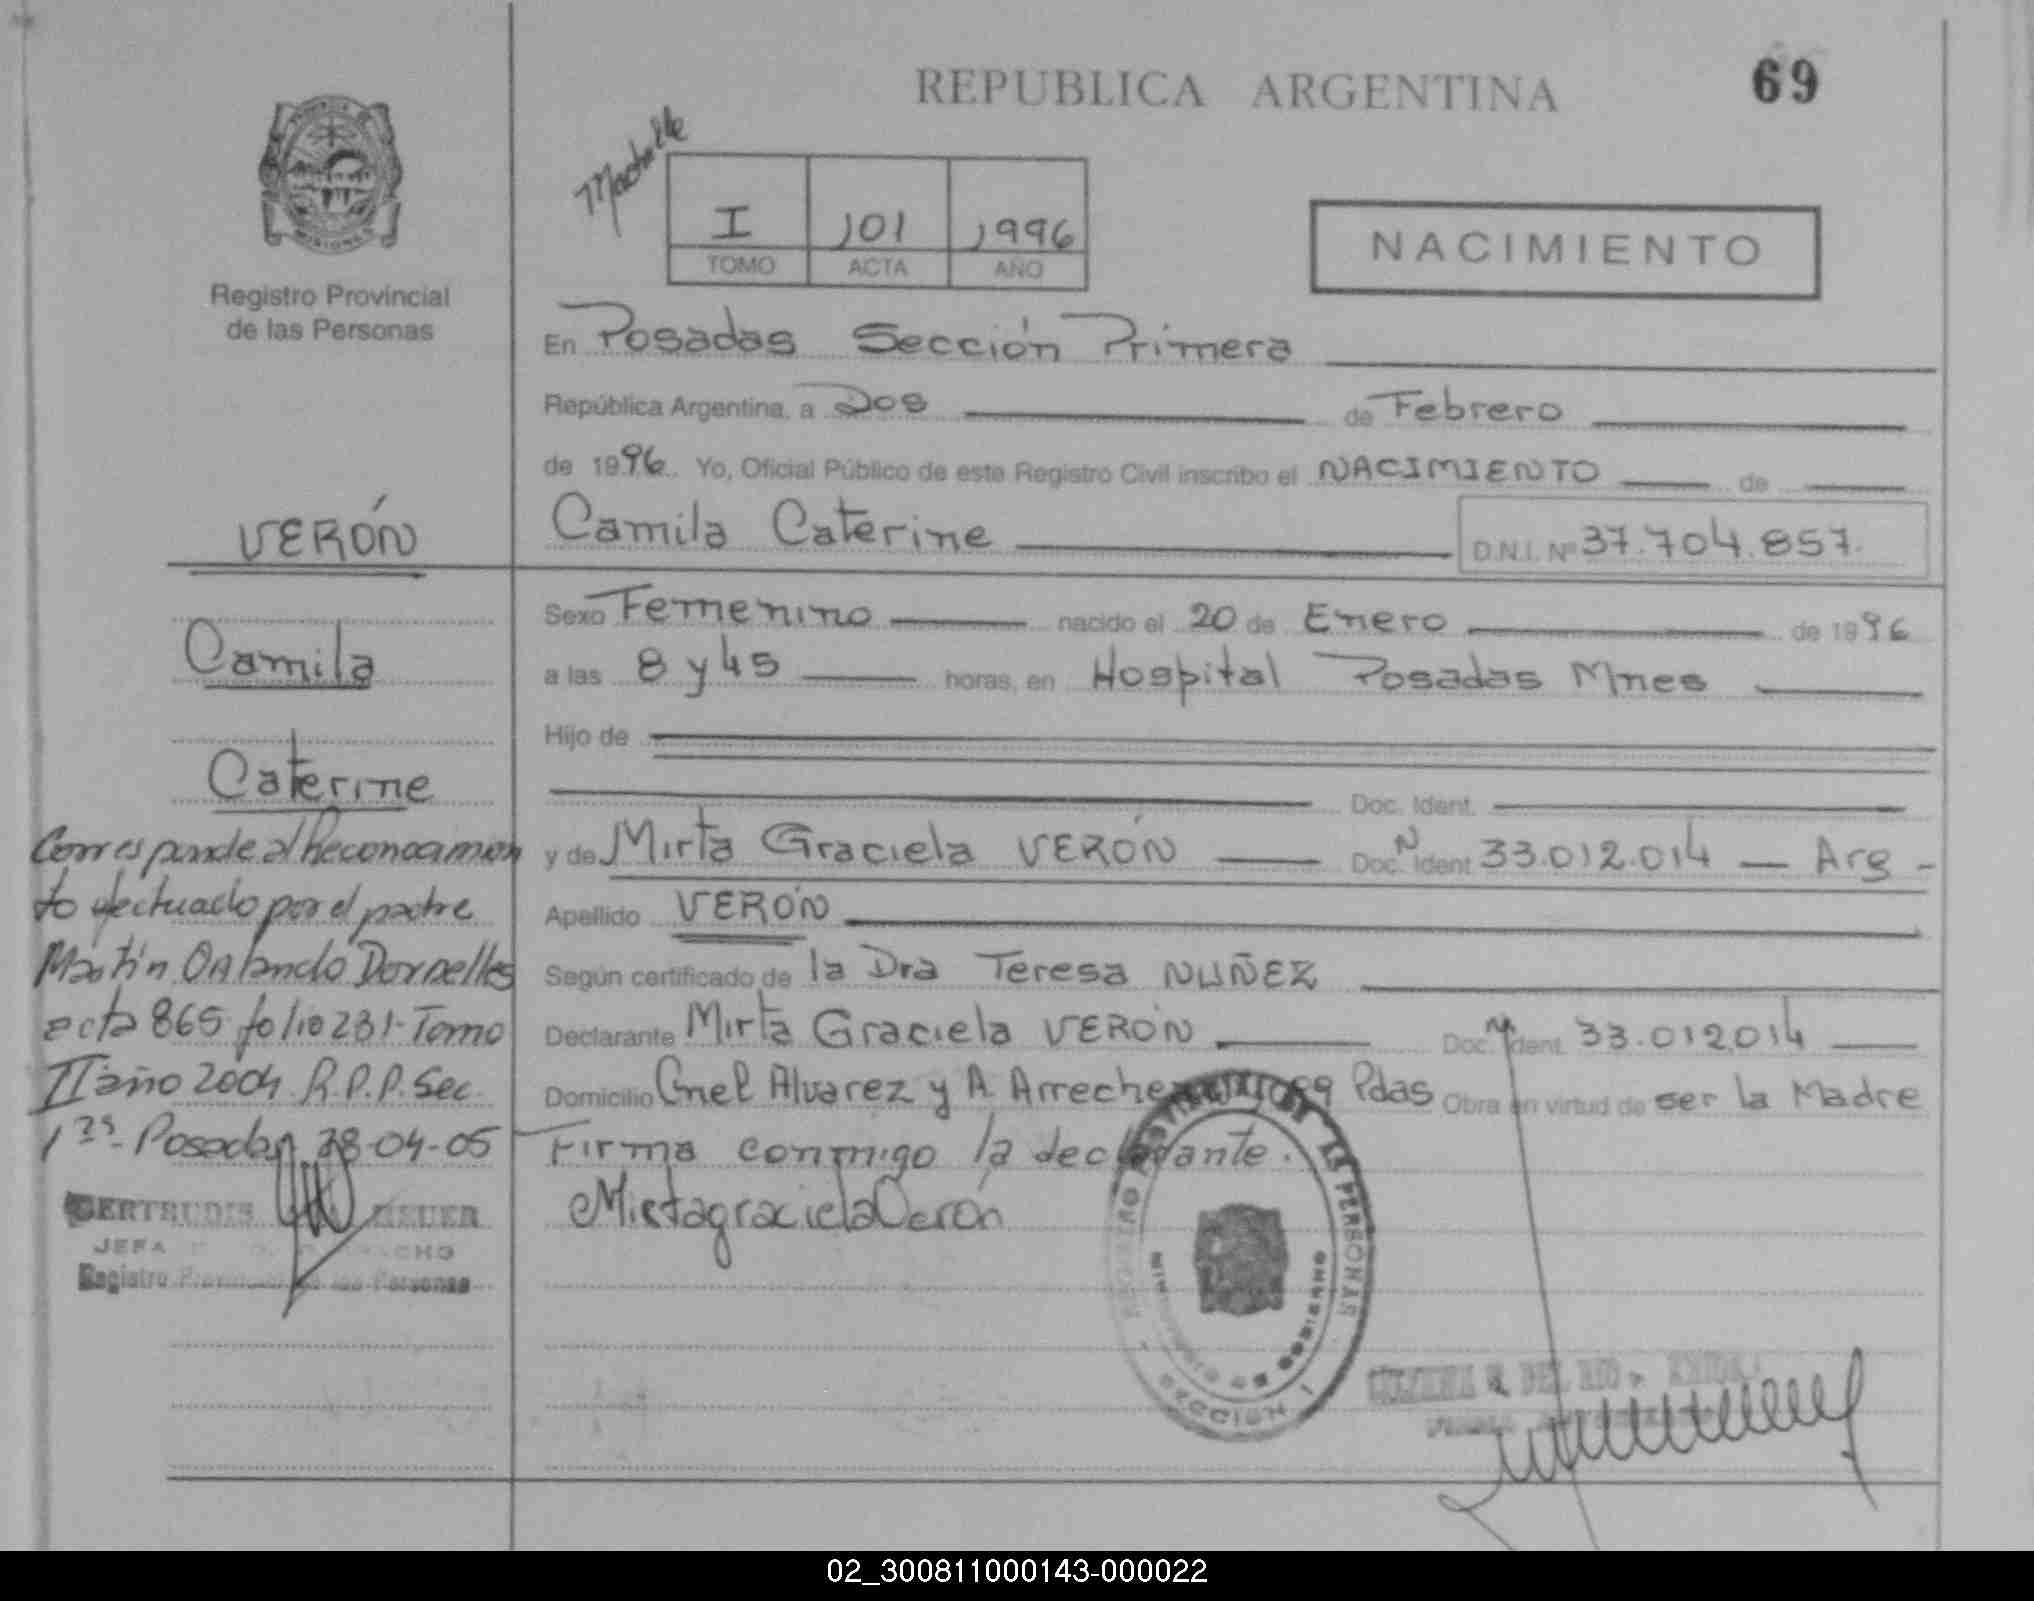 REPUBLICA ARGENTINA
69
I 101 1996
TOMO ACTA AÑO
NACIMIENTO
Registro Provincial
de las Personas
En Posadas Sección Primera
República Argentina, a Dos de Febrero
de 1996. Yo, Oficial Público de este Registro Civil inscribo el NACIMIENTO de
Camila Caterine D.N.I. Nº 37.704.857.
Sexo Femenino nacido el 20 de Enero de 1996
a las 8 y 45 horas, en Hospital Posadas Mnes
Hijo de
Doc. Ident.
y de Mirta Graciela VERÓN Doc. N Ident. 33.012.014 — Arg -
Apellido VERÓN
Según certificado de la Dra Teresa NUÑEZ
Declarante Mirta Graciela VERÓN Doc. N Ident. 33.012.014
Domicilio Cnel Alvarez y A. Pdas Obra en virtud de ser la Madre
Firma conmigo la declarante.
Mirtagraciela Verón
VERÓN
Camila
Caterine
Corresponde al Reconocimien
to efectuado por el padre
Martín Orlando Dornelles
acta 865 folio 231- Tomo
II año 2004 R.P.P. Sec.
1ra- Posadas 28-04-05
GERTRUDIS
JEFA
Registro Provincial de las Personas
REGISTRO PROVINCIAL DE LAS PERSONAS
MINISTERIO DE GOBIERNO
SECCION I
DEL RIO
02_300811000143-000022